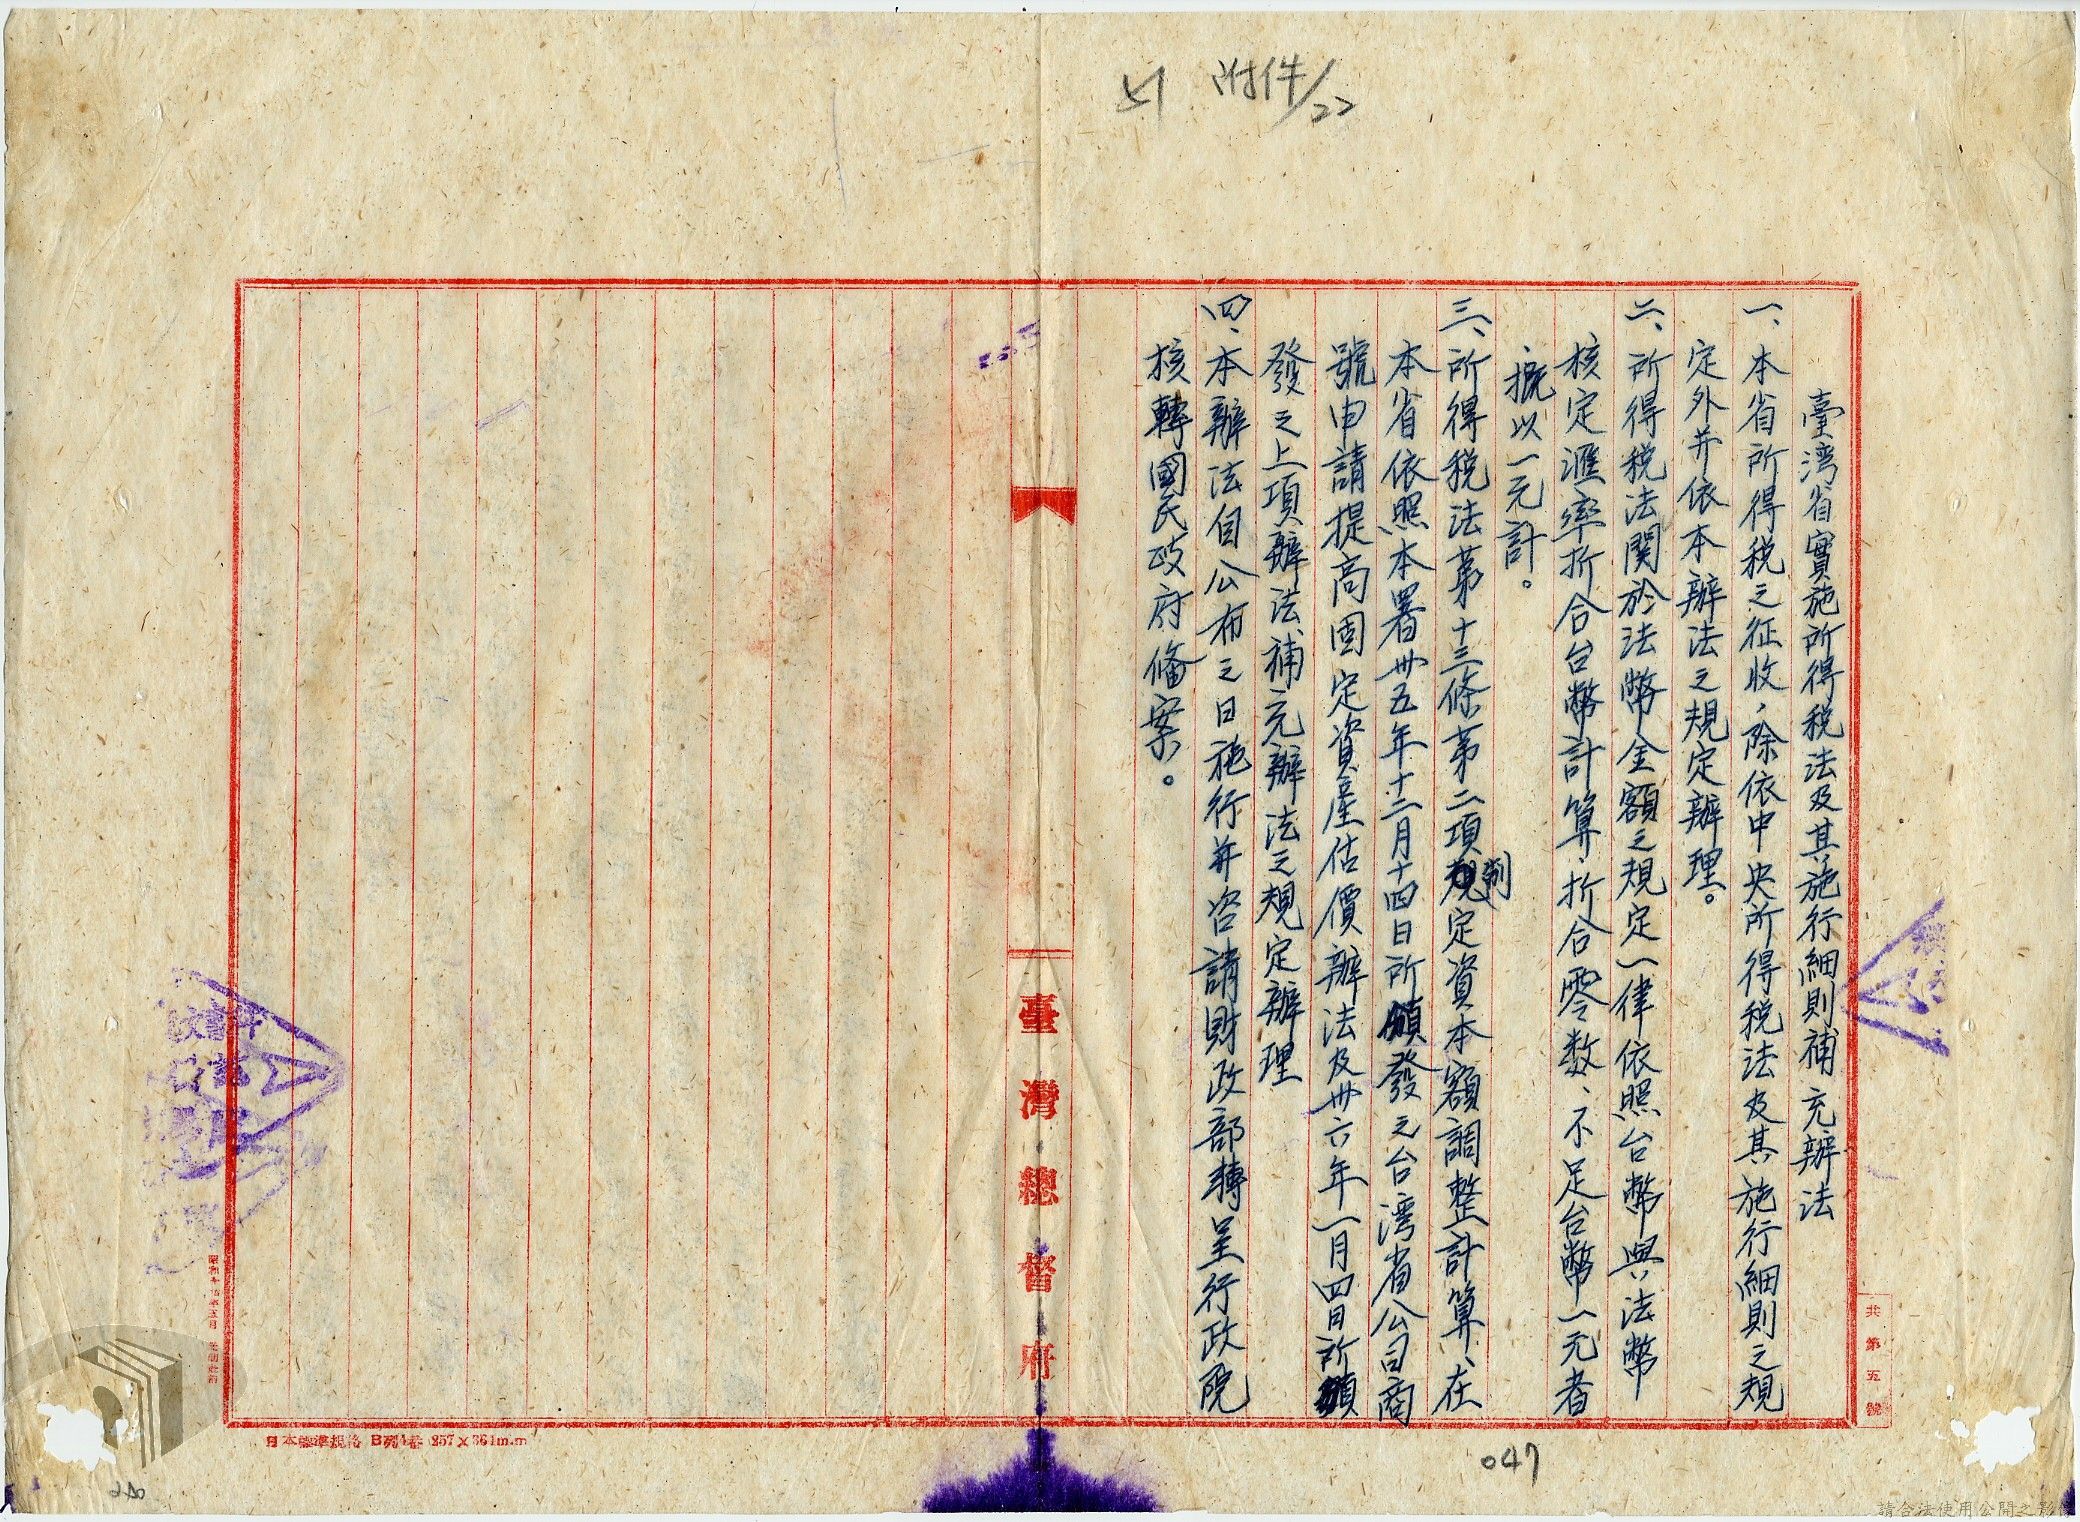 附件/22
臺湾省實施所得税法及其施行細則補充辦法
一、本省所得税之征收，除依中央所得税法及其施行細則之規
定外并依本辦法之規定辦理。
二、所得税法関於法幣金額之規定一律依照台幣與法幣
核定滙率折合台幣計算，折合零数、不足台幣一元者
、概以一元計。
三、所得税法第十三條第二項劃定資本額調整計算、在
本省依照本署卅五年十二月十四日所頒發之台湾省公司商
號申請提高固定資產估價辦法及卅六年一月四日所頒
發之上項辦法補充辦法之規定辦理
四、本辦法自公布之日施行并咨請財政部轉呈行政院
核轉國民政府備案。
臺灣總督府
共第五號
日本標準規格 B列4番 257×364m.m
047
請合法使用公開之影像